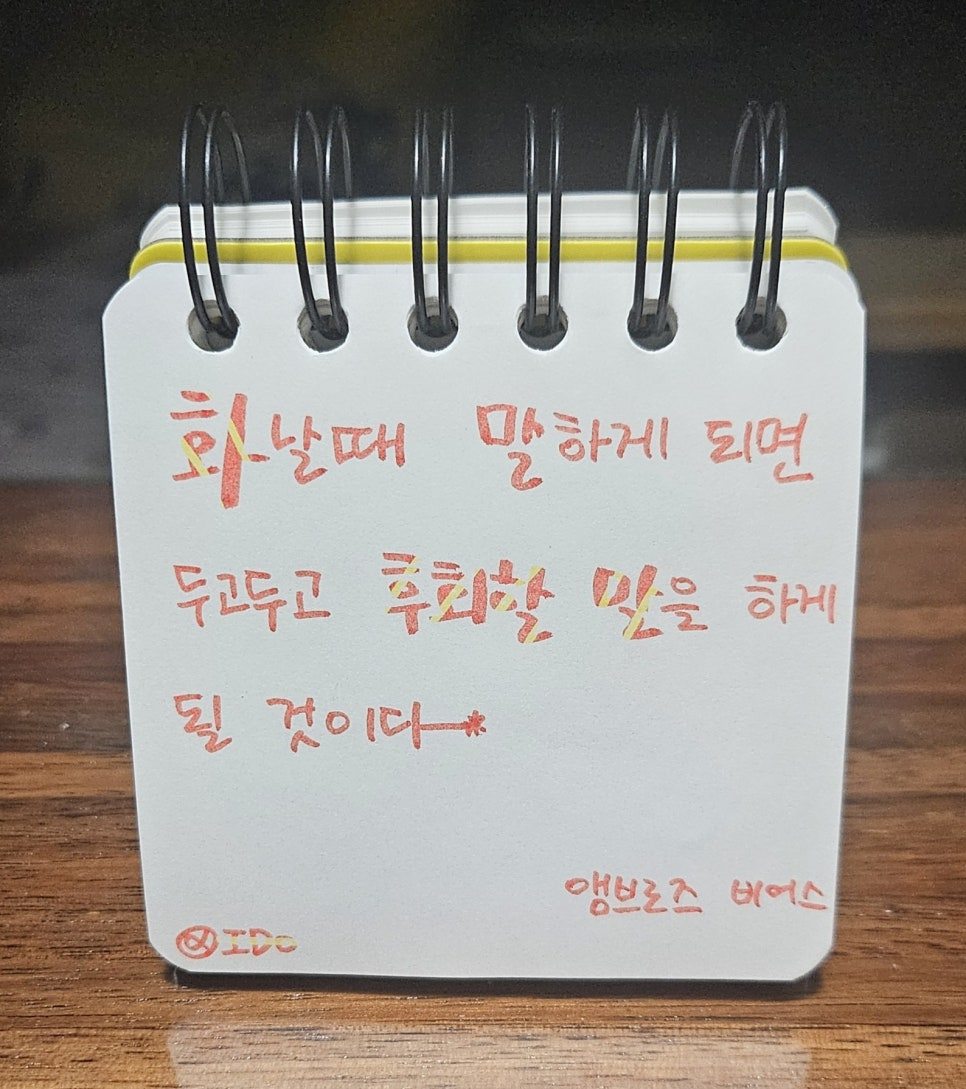 화날때 말하게 되면
두고두고 후회할 말을 하게
될 것이다
앰브로즈 비어스
IDo